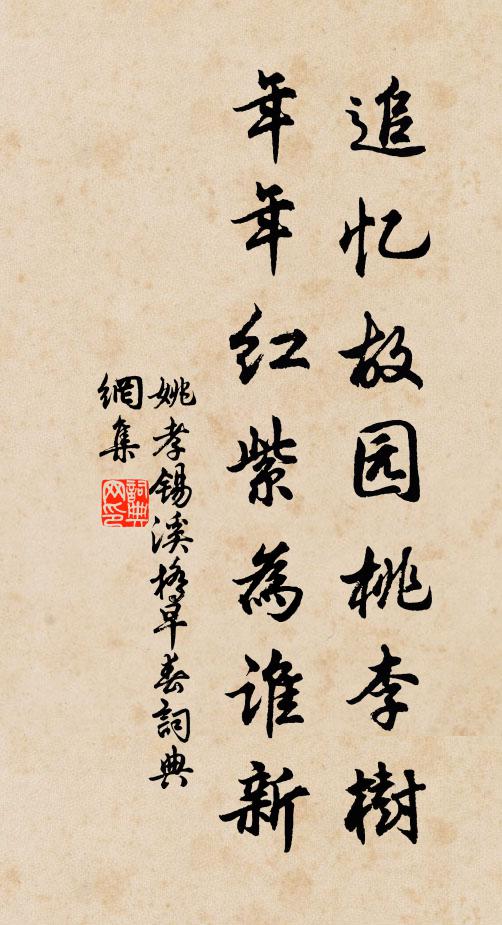 追忆故园桃李樹
年年红紫為谁新
姚孝锡溪桥早春詞典
網集
詞典
网印